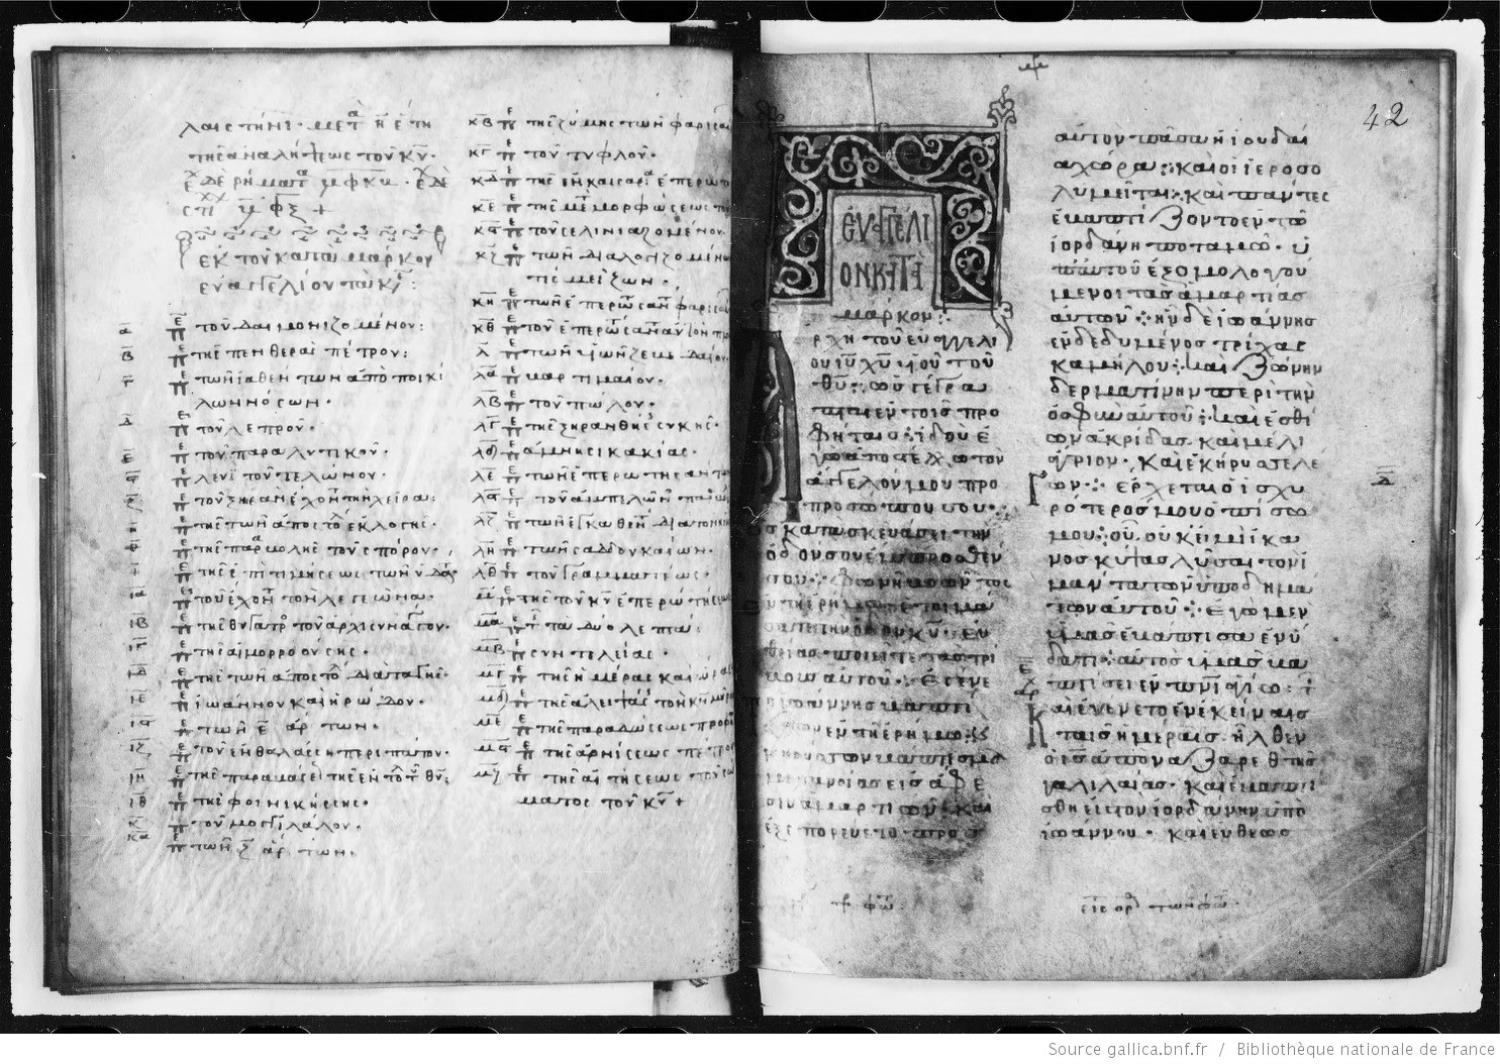 τῆς ἀναλήψεως τοῦ κυ·
ἐκ τοῦ κατὰ μάρκον
εὐαγγελίον τὰ κε:
α περ τοῦ δαιμονιζομένου:
β περ τῆς πενθερᾶς πέτρου:
γ περ τῶν ἰαθέντων ἀπὸ ποικί
λων νόσων·
δ περ τοῦ λεπροῦ·
ε περ τοῦ παραλυτικοῦ·
ς περ λευὶ τοῦ τελώνου·
ζ περ τοῦ ξηρὰν ἔχοντος χεῖρα:
η περ τῆς τῶν ἀποστόλων ἐκλογῆς·
θ περ τῆς παραβολῆς τοῦ σπόρου·
ι περ τῆς ἐπιτιμήσεως τῶν ὑδάτων
ια περ τοῦ ἔχοντος τὸν λεγεῶνα·
ιβ περ τῆς θυγατρὸς τοῦ ἀρχισυναγώγου·
ιγ περ τῆς αἱμορροούσης·
ιδ περ τῆς τῶν ἀποστόλων διαταγῆς·
ιε περ ἰωάννου καὶ ἡρώδου·
ις περ τῶν ε ἄρτων·
ιζ περ τοῦ ἐν θαλάσση περιπάτου·
ιη περ τῆς παραβάσεως τῆς ἐντολῆς τοῦ θυ:
ιθ περ τῆς φοινικήσσης·
κ περ τοῦ μογγιλάλου·
κα περ τῶν ζ ἄρτων·
κβ περ τῆς ζύμης τῶν φαρισαί
κγ περ τοῦ τυφλοῦ·
κδ περ τῆς ἐν καισαρία ἐπερωτ
κε περ τῆς μεταμορφώσεως το
κς περ τοῦ σεληνιαζομένου·
κζ περ τῶν διαλογιζομένων
τίς μείζων·
κη περ τῶν ἐπερωτησάντων φαρισαί
κθ περ τοῦ ἐπερωτήσαντος αὐτὸν πλ
λ περ τῶν υἱῶν ζεβεδαίου·
λα περ βαρτιμαίου·
λβ περ τοῦ πώλου·
λγ περ τῆς ξηρανθείσης συκῆς·
λδ περ ἀμνησικακίας·
λε περ τῶν ἐπερωτησάντων
λς περ τοῦ ἀμπελῶνος παραβολ
λζ περ τῶν ἐγκαθέτων διὰ τὸν κῆνσον
λη περ τῶν σαδδουκαίων·
λθ περ τοῦ γραμματέως·
μ περ τῆς τοῦ κυ ἐπερωτήσεως
μα περ τ τὰ δύο λεπτά:
μβ περ συντελείας·
μγ περ τῆς ἡμέρας καὶ ὥρας
μδ περ τῆς ἀλειψάσης τὸν κν μύρω
με περ τῆς παραδώσεως προφη
μς περ τῆς ἀρνήσεως πέτρου
μζ περ τῆς αἰτήσεως τοῦ σώ
ματος τοῦ κυ +
42
ΕΥΑΓΓΕΛΙ
ΟΝ ΚΑΤΑ
μάρκον:
Ἀρχὴ τοῦ εὐαγγελί
ου ιυ χυ υἱοῦ τοῦ
θυ: ὡς γέγρα
πται ἐν τοῖς προ
φήταις: ἰδοὺ ἐ
γὼ ἀποστέλλω τὸν
ἄγγελόν μου πρὸ
προσώπου σου·
ὃς κατασκευάσει τὴν
ὁδόν σου ἔμπροσθέν
σου· φωνὴ βοῶντος
ἐν τῆ ἐρήμω· ἑτοιμά
σατε τὴν ὁδὸν κυ· εὐ
θείας ποιεῖτε τὰς τρί
βους αὐτοῦ: ἐγένε
το ἰωάννης βαπτί
ζων ἐν τῆ ἐρήμω·
καὶ κηρύσσων βάπτισμα
μετανοίας εἰς ἄφε
σιν ἁμαρτιῶν· καὶ
ἐξεπορεύετο πρὸς
αὐτὸν πᾶσα ἡ ἰουδαί
α χώρα: καὶ οἱ ἱεροσο
λυμεῖται· καὶ πάντες
ἐβαπτίζοντο ἐν τῶ
ἰορδάνη ποταμῶ· ὑ
π' αὐτοῦ ἐξομολογού
μενοι τὰς ἁμαρτίας
αὐτῶν: ἦν δὲ ἰωάννης
ἐνδεδυμένος τρίχας
καμήλου: καὶ ζώνην
δερματίνην περὶ τὴν
ὀσφὺν αὐτοῦ: καὶ ἐσθί
ων ἀκρίδας καὶ μέλι
ἄγριον· καὶ ἐκήρυσσε λέ
γων: ἔρχεται ὁ ἰσχυ
ρότερός μου ὀπίσω
μου: οὗ οὐκ εἰμὶ ἱκα
νὸς κύψας λῦσαι τὸν ἱ
μάντα τῶν ὑποδημά
των αὐτοῦ: ἐγὼ μὲν
ὑμᾶς ἐβάπτισα ἐν ὕ
δατι: αὐτὸς ὑμᾶς βα
πτίσει ἐν πνι ἁγίω:
Καὶ ἐγένετο ἐν ἐκείναις
ταῖς ἡμέραις ἦλθεν
ὁ ις ἀπὸ ναζαρὲθ τῆς
γαλιλαίας· καὶ ἐβαπτί
σθη εἰς τὸν ἰορδάνην ὑπὸ
ἰωάννου· καὶ εὐθέως
Source gallica.bnf.fr / Bibliothèque nationale de France